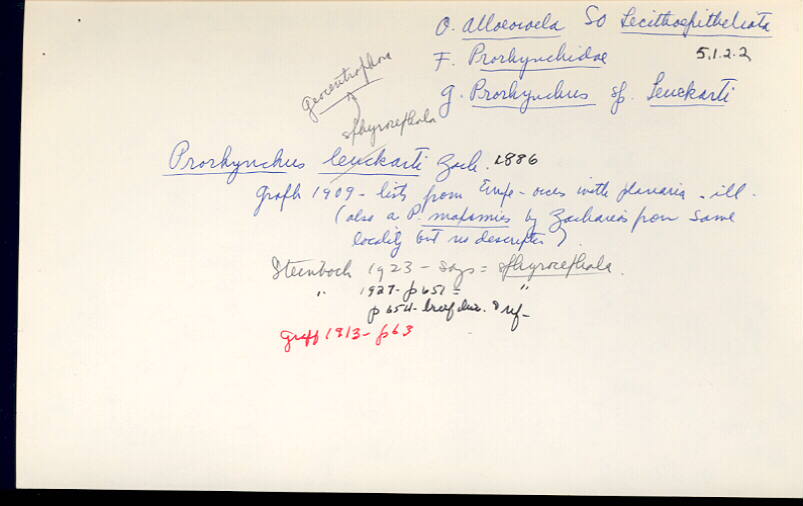 O. Alloeocoela SO Lecithoepitheliata
F. Prorhynchidae 5.1.2.2
g. Prorhynchus sp. Leuckarti
geocentrophora
sphyrocephala
Prorhynchus leuckarti Zach. 1886
Graff 1909 - lists from Europe - occes with planaria . ill -
(also a P. by Zacharias from same
locality but no description)
Steinbock 1923 - says = sphyrocephala.
" 1927 - p 651 = "
p 654 - brief disc. & ref -
Graff 1913 - p 63